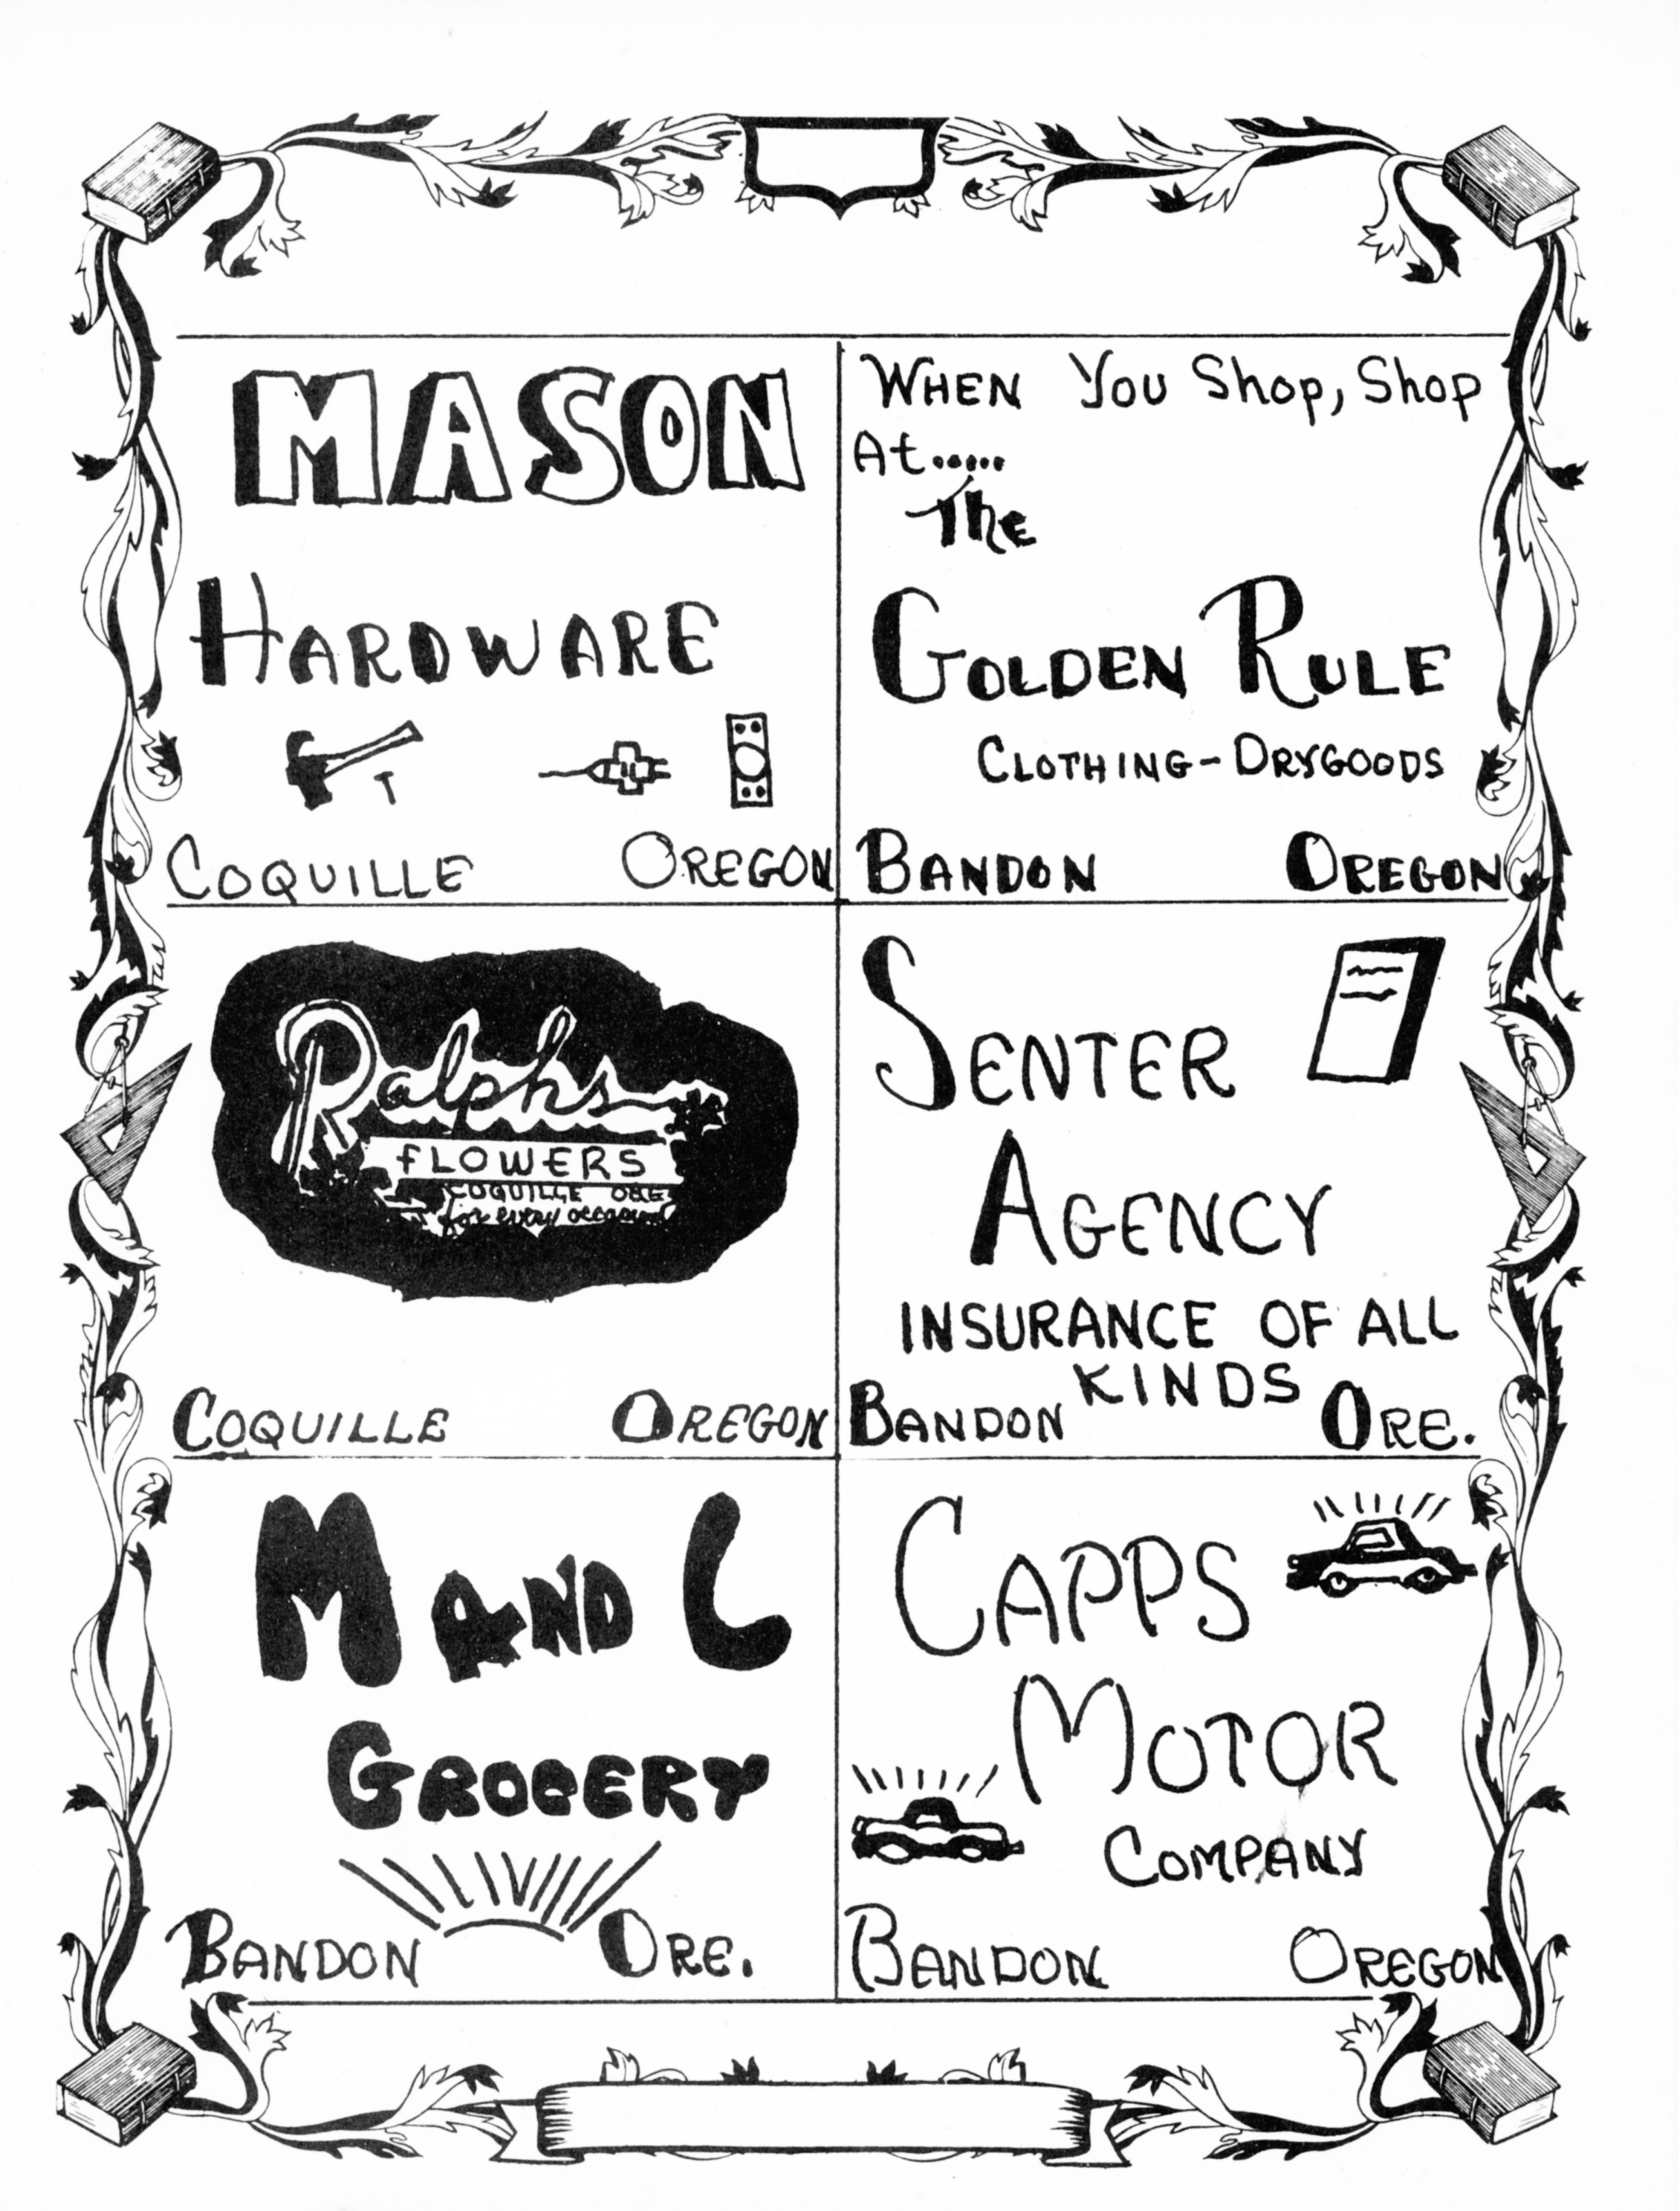 MASON
HARDWARE
COQUILLE OREGON
WHEN YOU Shop, Shop
At.....
The
GOLDEN RULE
CLOTHING-DRYGOODS
BANDON OREGON
Ralphs
FLOWERS
COQUILLE ORE
for every occasion
COQUILLE OREGON
SENTER
AGENCY
INSURANCE OF ALL
KINDS
BANDON ORE.
M AND L
GROCERY
BANDON ORE.
CAPPS
MOTOR
COMPANY
BANDON OREGON